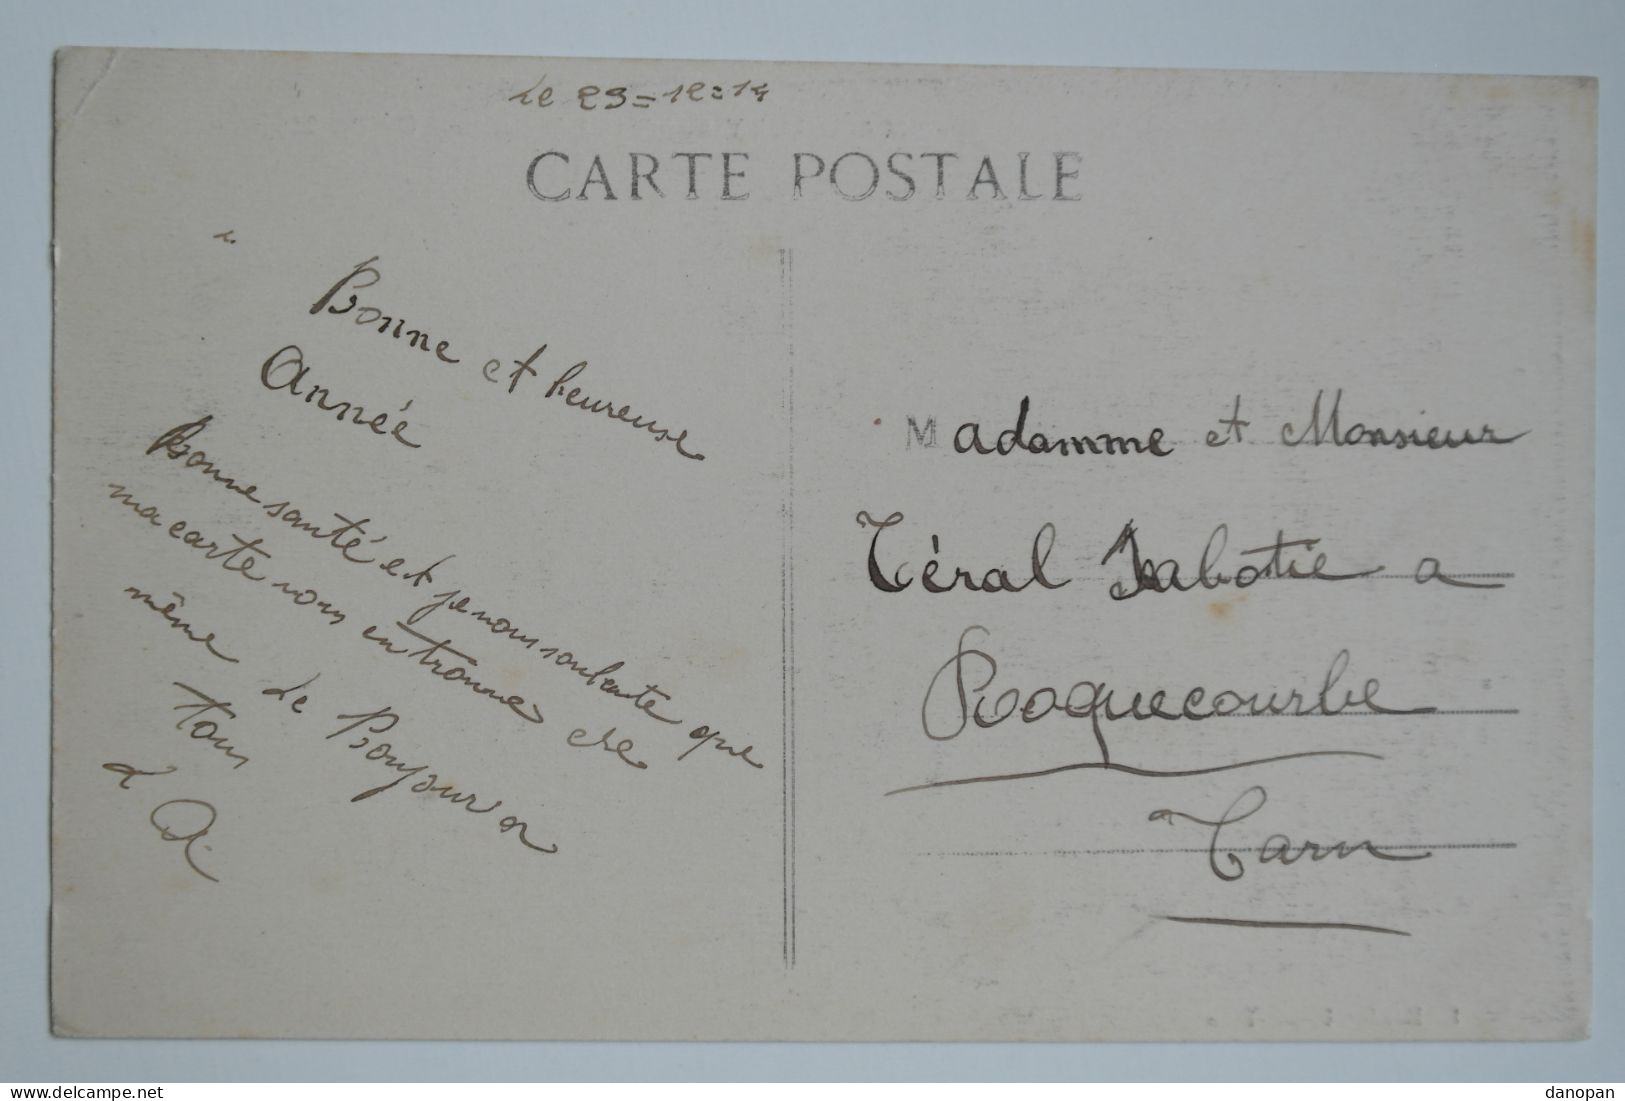 Le 29=12=14
CARTE POSTALE
Bonne et heureuse
Année
Bonne santé et je vous souhaite que
ma carte vous en tronne de
même Le Bonjour a
tous
d
Madamme et Monsieur
Téral Sabatié a
Roquecourbe
Tarn
www.delcampe.net
danopan